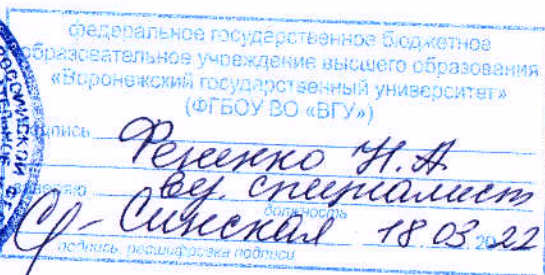 федеральное государственное бюджетное
образовательное учреждение высшего образования
«Воронежский государственный университет»
(ФГБОУ ВО «ВГУ»)
подпись Фененко Н.А.
заверяю вед. специалист
должность
Синская 18.03.2022
подпись, расшифровка подписи